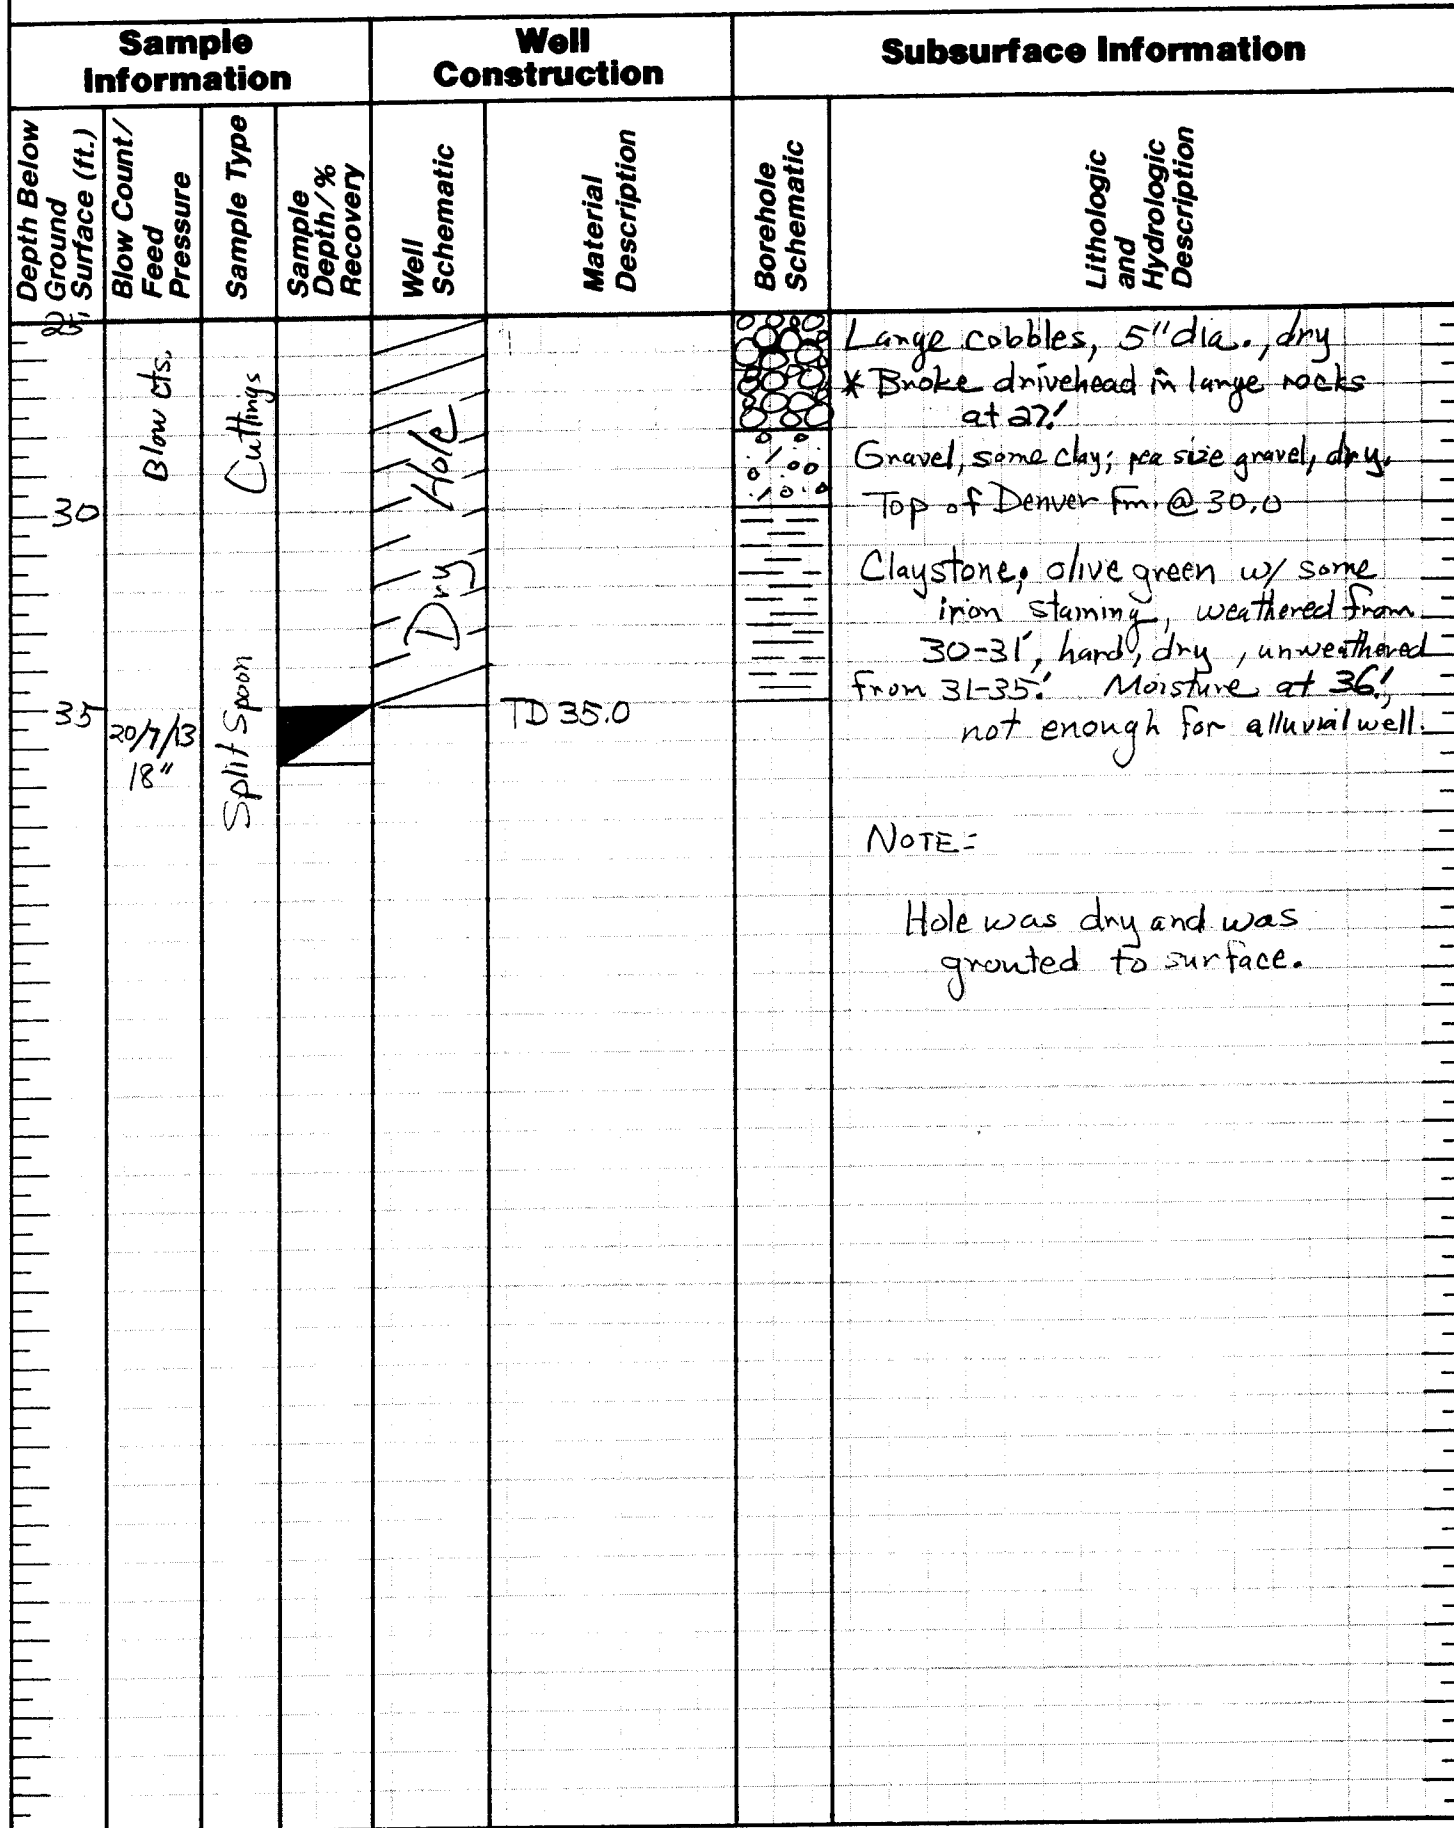 Sample
Information
Well
Construction
Subsurface Information
Depth Below
Ground
Surface (ft.)
Blow Count/
Feed
Pressure
Sample Type
Sample
Depth/%
Recovery
Well
Schematic
Material
Description
Borehole
Schematic
Lithologic
and
Hydrologic
Description
Blow cts.
Cuttings
Dry Hole
Large cobbles, 5" dia., dry
* Broke drivehead in large rocks
at 27'.
Gravel, some clay; pea size gravel, dry.
30
Top of Denver Fm. @ 30.0
Claystone, olive green w/ some
iron staining, weathered from
30-31', hard, dry, unweathered
from 31-35'. Moisture at 36',
35
20/7/13
18"
Split Spoon
TD 35.0
not enough for alluvial well.
NOTE:
Hole was dry and was
grouted to surface.